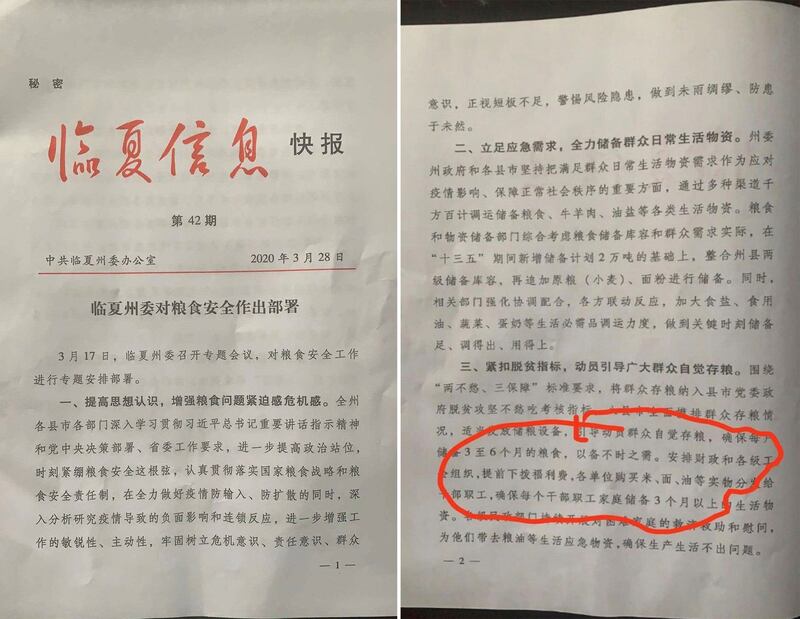 秘 密
临夏信息 快报
第 42 期
中共临夏州委办公室 2020 年 3 月 28 日
临夏州委对粮食安全作出部署
3 月 17 日，临夏州委召开专题会议，对粮食安全工作
进行专题安排部署。
一、提高思想认识，增强粮食问题紧迫感危机感。全州
各县市各部门深入学习贯彻习近平总书记重要讲话指示精神
和党中央决策部署、省委工作要求，进一步提高政治站位，
时刻紧绷粮食安全这根弦，认真贯彻落实国家粮食战略和粮
食安全责任制，在全力做好疫情防输入、防扩散的同时，深
入分析研究疫情导致的负面影响和连锁反应，进一步增强工
作的敏锐性、主动性，牢固树立危机意识、责任意识、群众
— 1 —
意识，正视短板不足，警惕风险隐患，做到未雨绸缪、防患
于未然。
二、立足应急需求，全力储备群众日常生活物资。州委
州政府和各县市坚持把满足群众日常生活物资需求作为应对
疫情影响、保障正常社会秩序的重要方面，通过多种渠道千
方百计调运储备粮食、牛羊肉、油盐等各类生活物资。粮食
和物资储备部门综合考虑粮食储备库容和群众需求实际，在
“十三五”期间新增储备计划 2 万吨的基础上，整合州县两
级储备库容，再追加原粮（小麦）、面粉进行储备。同时，
相关部门强化协调配合，各方联动反应，加大食盐、食用
油、蔬菜、蛋奶等生活必需品调运力度，做到关键时刻储备
足、调得出、用得上。
三、紧扣脱贫指标，动员引导广大群众自觉存粮。围绕
“两不愁、三保障”标准要求，将群众存粮纳入县市党委政
府脱贫攻坚不愁吃考核指标，县市全面摸排群众存粮情
况，适当发放储粮设备，引导动员群众自觉存粮，确保每户
储备 3 至 6 个月的粮食，以备不时之需。安排财政和各级工
会组织，提前下拨福利费，各单位购买米、面、油等实物分发给
干部职工，确保每个干部职工家庭储备 3 个月以上的生活物
资。各级民政部门持续开展对困难家庭的救济救助和慰问，
为他们带去粮油等生活应急物资，确保生产生活不出问题。
— 2 —